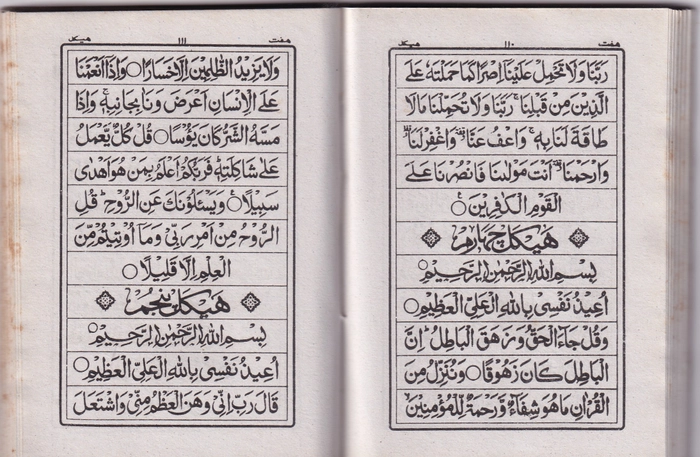 هفت ١١٠ هيكل
رَبَّنَا وَلَا تَحْمِلْ عَلَيْنَا اِصْرًا كَمَا حَمَلْتَهٗ عَلَى
الَّذِيْنَ مِنْ قَبْلِنَا ۚ رَبَّنَا وَلَا تُحَمِّلْنَا مَالَا
طَاقَةَ لَنَا بِهٖ ۚ وَاعْفُ عَنَّا ۥ وَاغْفِرْلَنَا ۥ
وَارْحَمْنَا ۥ اَنْتَ مَوْلٰىنَا فَانْصُرْنَا عَلَى
الْقَوْمِ الْكَافِرِيْنَ ○
هيكل چهارم
بِسْمِ اللهِ الرَّحْمٰنِ الرَّحِيْمِ
اُعِيْذُ نَفْسِيْ بِاللهِ الْعَلِيِّ الْعَظِيْمِ ○
وَقُلْ جَآءَ الْحَقُّ وَزَهَقَ الْبَاطِلُ ؕ اِنَّ
الْبَاطِلَ كَانَ زَهُوْقًا ○ وَنُنَزِّلُ مِنَ
الْقُرْاٰنِ مَا هُوَ شِفَآءٌ وَّرَحْمَةٌ لِّلْمُؤْمِنِيْنَ ۙ
هفت ١١١ هيكل
وَلَا يَزِيْدُ الظّٰلِمِيْنَ اِلَّا خَسَارًا ○ وَاِذَا اَنْعَمْنَا
عَلَى الْاِنْسَانِ اَعْرَضَ وَنَاٰ بِجَانِبِهٖ ۚ وَاِذَا
مَسَّهُ الشَّرُّ كَانَ يَئُوْسًا ○ قُلْ كُلٌّ يَّعْمَلُ
عَلٰى شَاكِلَتِهٖ ؕ فَرَبُّكُمْ اَعْلَمُ بِمَنْ هُوَ اَهْدٰى
سَبِيْلًا ○ وَيَسْئَلُوْنَكَ عَنِ الرُّوْحِ ؕ قُلِ
الرُّوْحُ مِنْ اَمْرِ رَبِّيْ وَمَا اُوْتِيْتُمْ مِّنَ
الْعِلْمِ اِلَّا قَلِيْلًا ○
هيكل پنجم
بِسْمِ اللهِ الرَّحْمٰنِ الرَّحِيْمِ ○
اُعِيْذُ نَفْسِيْ بِاللهِ الْعَلِيِّ الْعَظِيْمِ ○
قَالَ رَبِّ اِنِّيْ وَهَنَ الْعَظْمُ مِنِّيْ وَاشْتَعَلَ